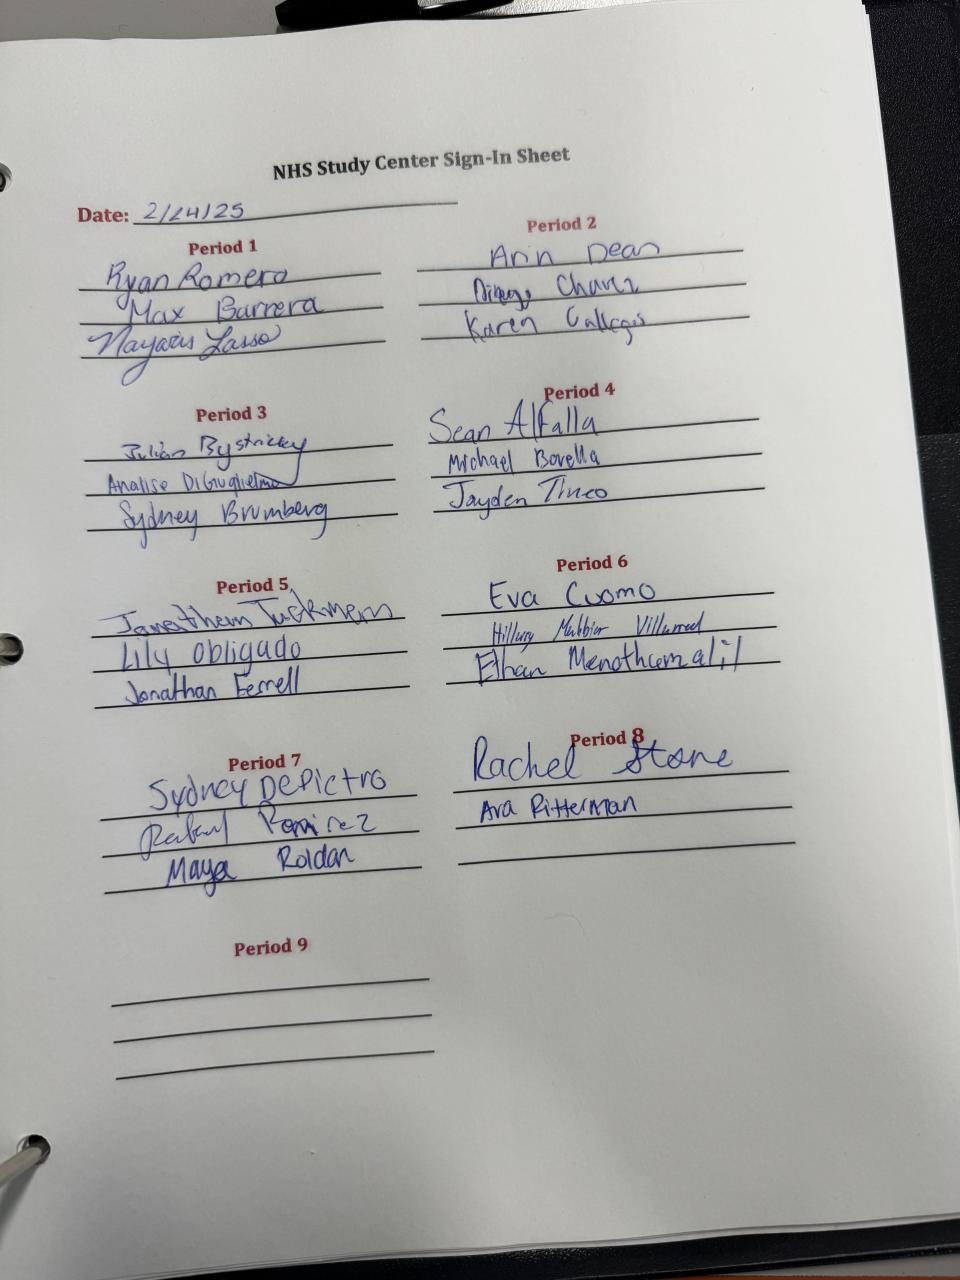 NHS Study Center Sign-In Sheet
Date: 2/24/25
Period 1
Ryan Romero
Max Barrera
Nayaris Lasso
Period 2
Arin Dean
Chavez
Karen Gallegos
Period 3
Julian Bystricky
Analise DiGiuglielmo
Sydney Brumberg
Period 4
Sean Alfalla
Michael Borella
Jayden Tineo
Period 5
Jonathan Tuckman
Lily Obligado
Jonathan Ferrell
Period 6
Eva Cuomo
Hillary Villarreal
Ethan
Period 7
Sydney DePietro
Ramirez
Maya Roldan
Period 8
Rachel Stone
Ava Ritterman
Period 9